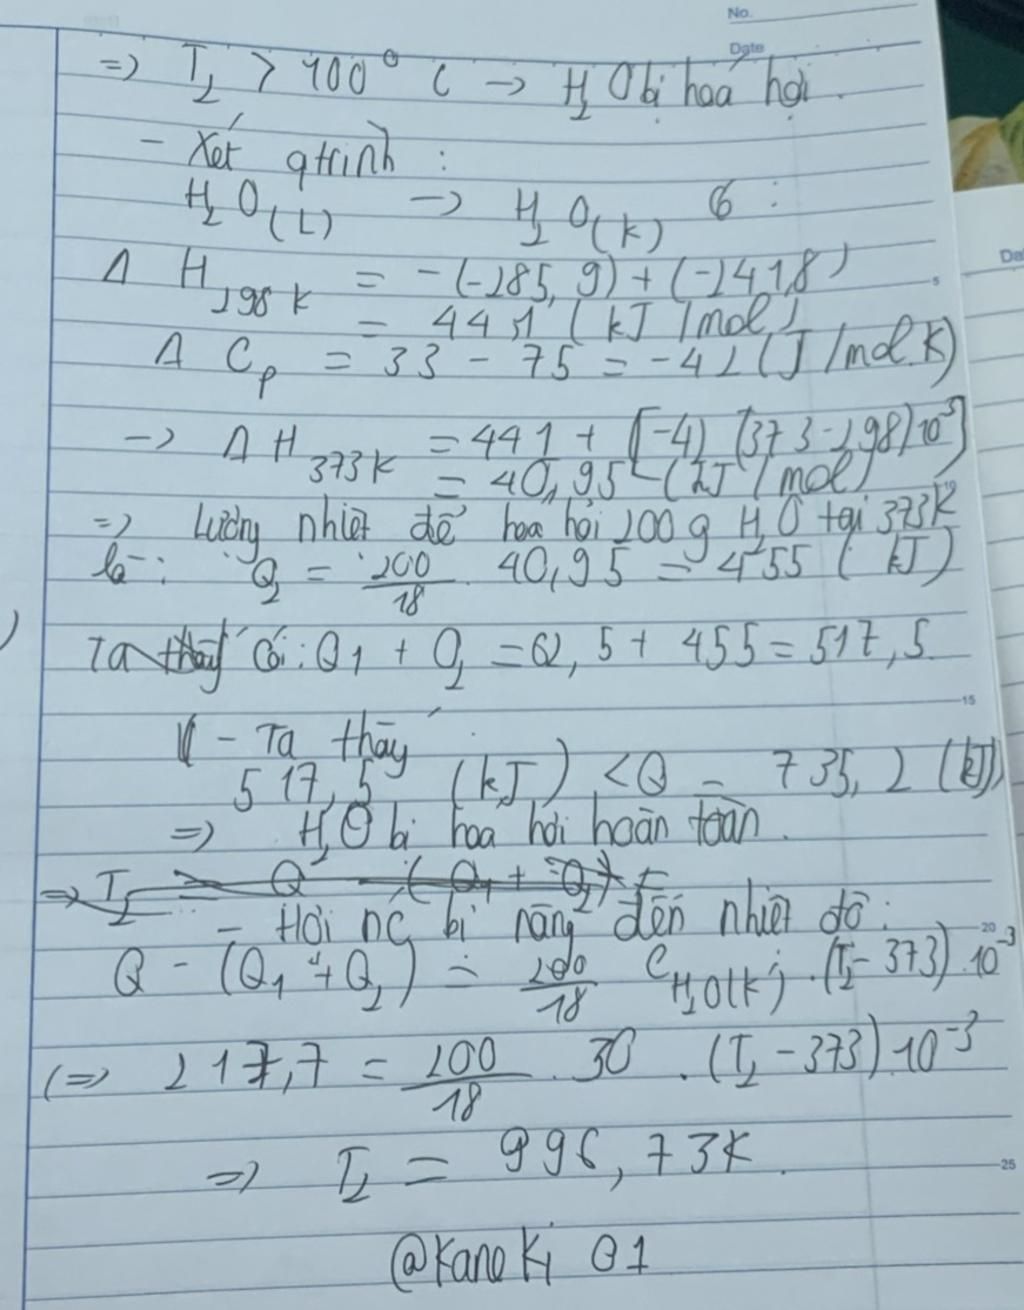 No.
Date
=> T₂ > 100° C -> H₂O bị hoá hơi.
- Xét qtrình :
H₂O(L) -> H₂O(k) có :
Δ H₂₉₈ₖ = -(-285,9) + (-241,8)
= 44,1 (kJ/mol)
Δ Cp = 33 - 75 = -42 (J/mol.K)
-> Δ H₃₇₃ₖ = 441 + [-42 (373-298)10⁻³]
= 40,95 (kJ/mol)
=> Lượng nhiệt để hoa hơi 200g H₂O tại 373K
là: Q₂ = 200/18 . 40,95 = 455 (kJ)
Ta thấy có: Q₁ + Q₂ = 62,5 + 455 = 517,5
- Ta thấy
517,5 (kJ) < Q = 735,2 (kJ)
=> H₂O bị hoa hơi hoàn toàn.
=> T₂ = Q - (Q₁ + Q₂) =
- Hơi nc bị nâng đến nhiệt độ:
Q - (Q₁ + Q₂) = 200/18 C H₂O(k) . (T₂ - 373) . 10⁻³
(=> 217,7 = 200/18 . 30 . (T₂ - 373) . 10⁻³
=> T₂ = 996,73K.
@Kane Ki 01
5
10
15
20
25
Da